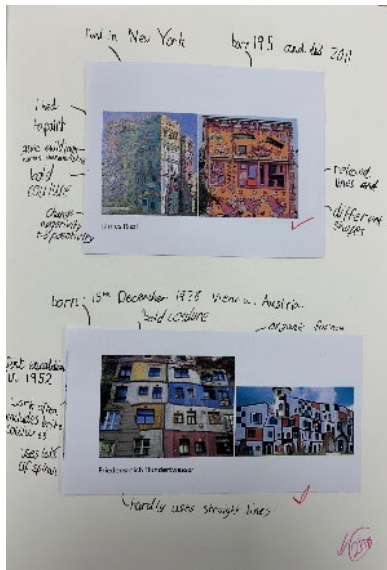 lived in New York
born 195 and died 2011
liked
to paint
bold
colours
change
negativity
to positivity
lines and
different
shapes
James Rizzi
born: 15th December 1928 Vienna. Austria.
bold colours
organic forms
in 1952
work often
includes
colours
uses lots
of spirals
Friedensreich Hundertwasser
hardly uses straight lines